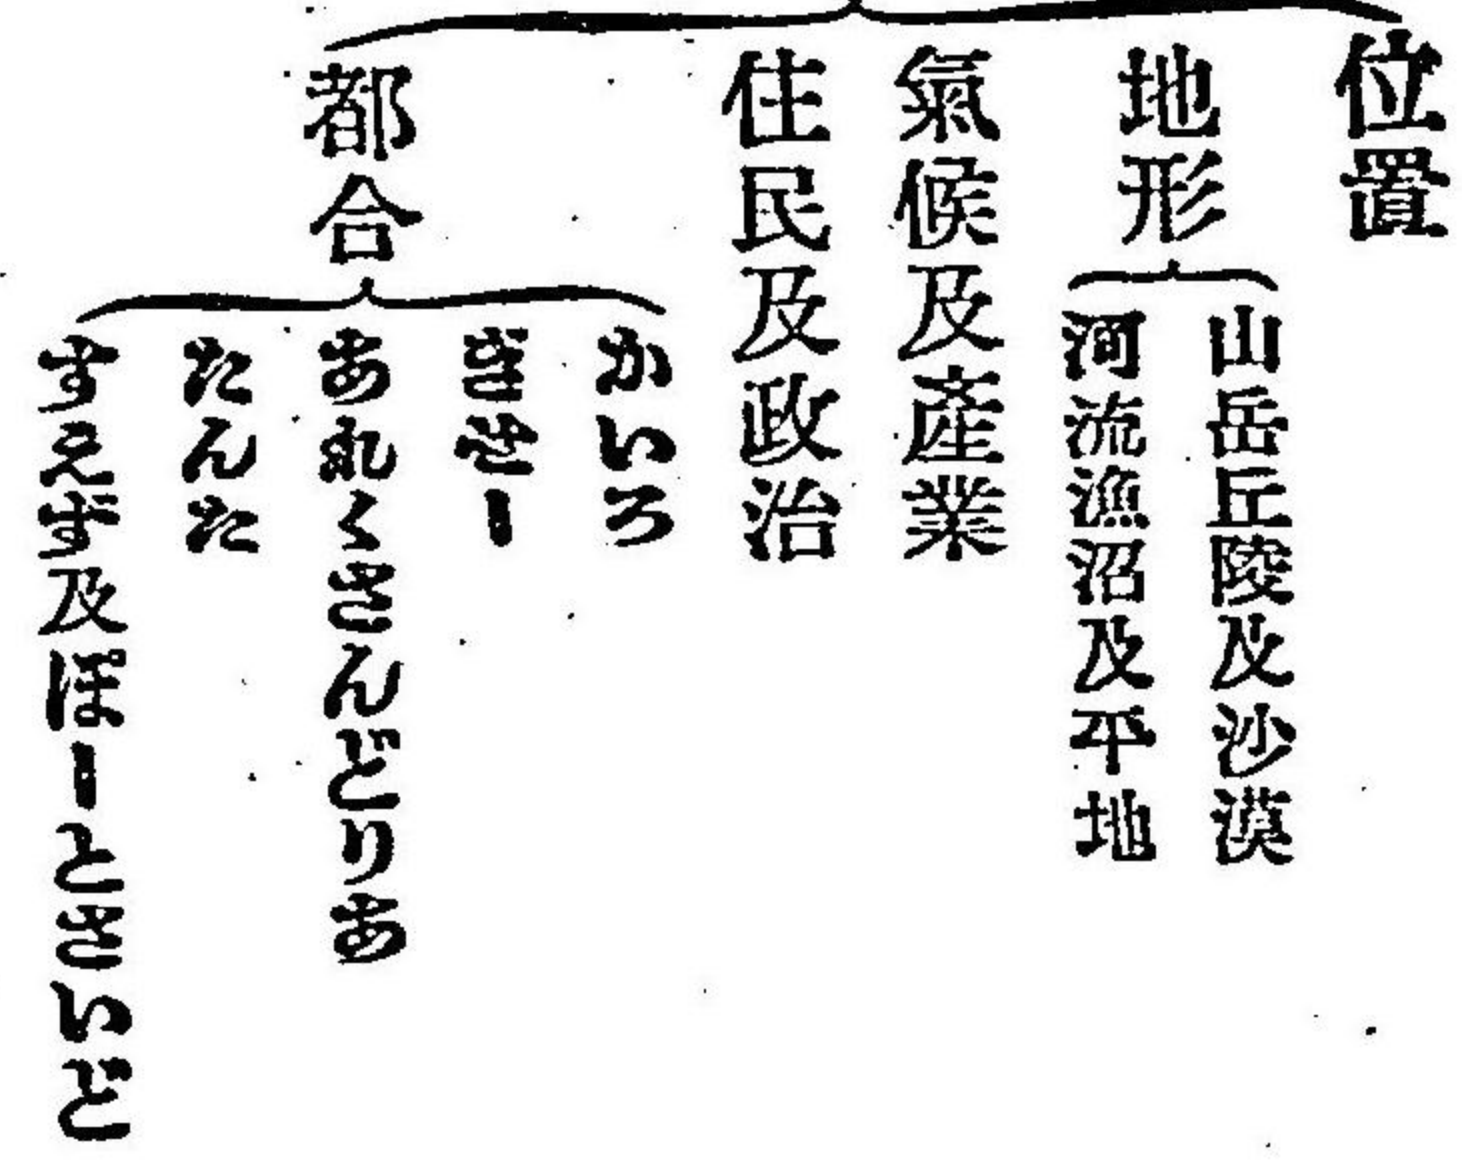 位置
地形
山岳丘陵及沙漠
河流漁沼及平地
氣候及產業
住民及政治
都合
かいろ
ぎせー
あれくさんどりあ
たんた
すえず及ぽーとさいど